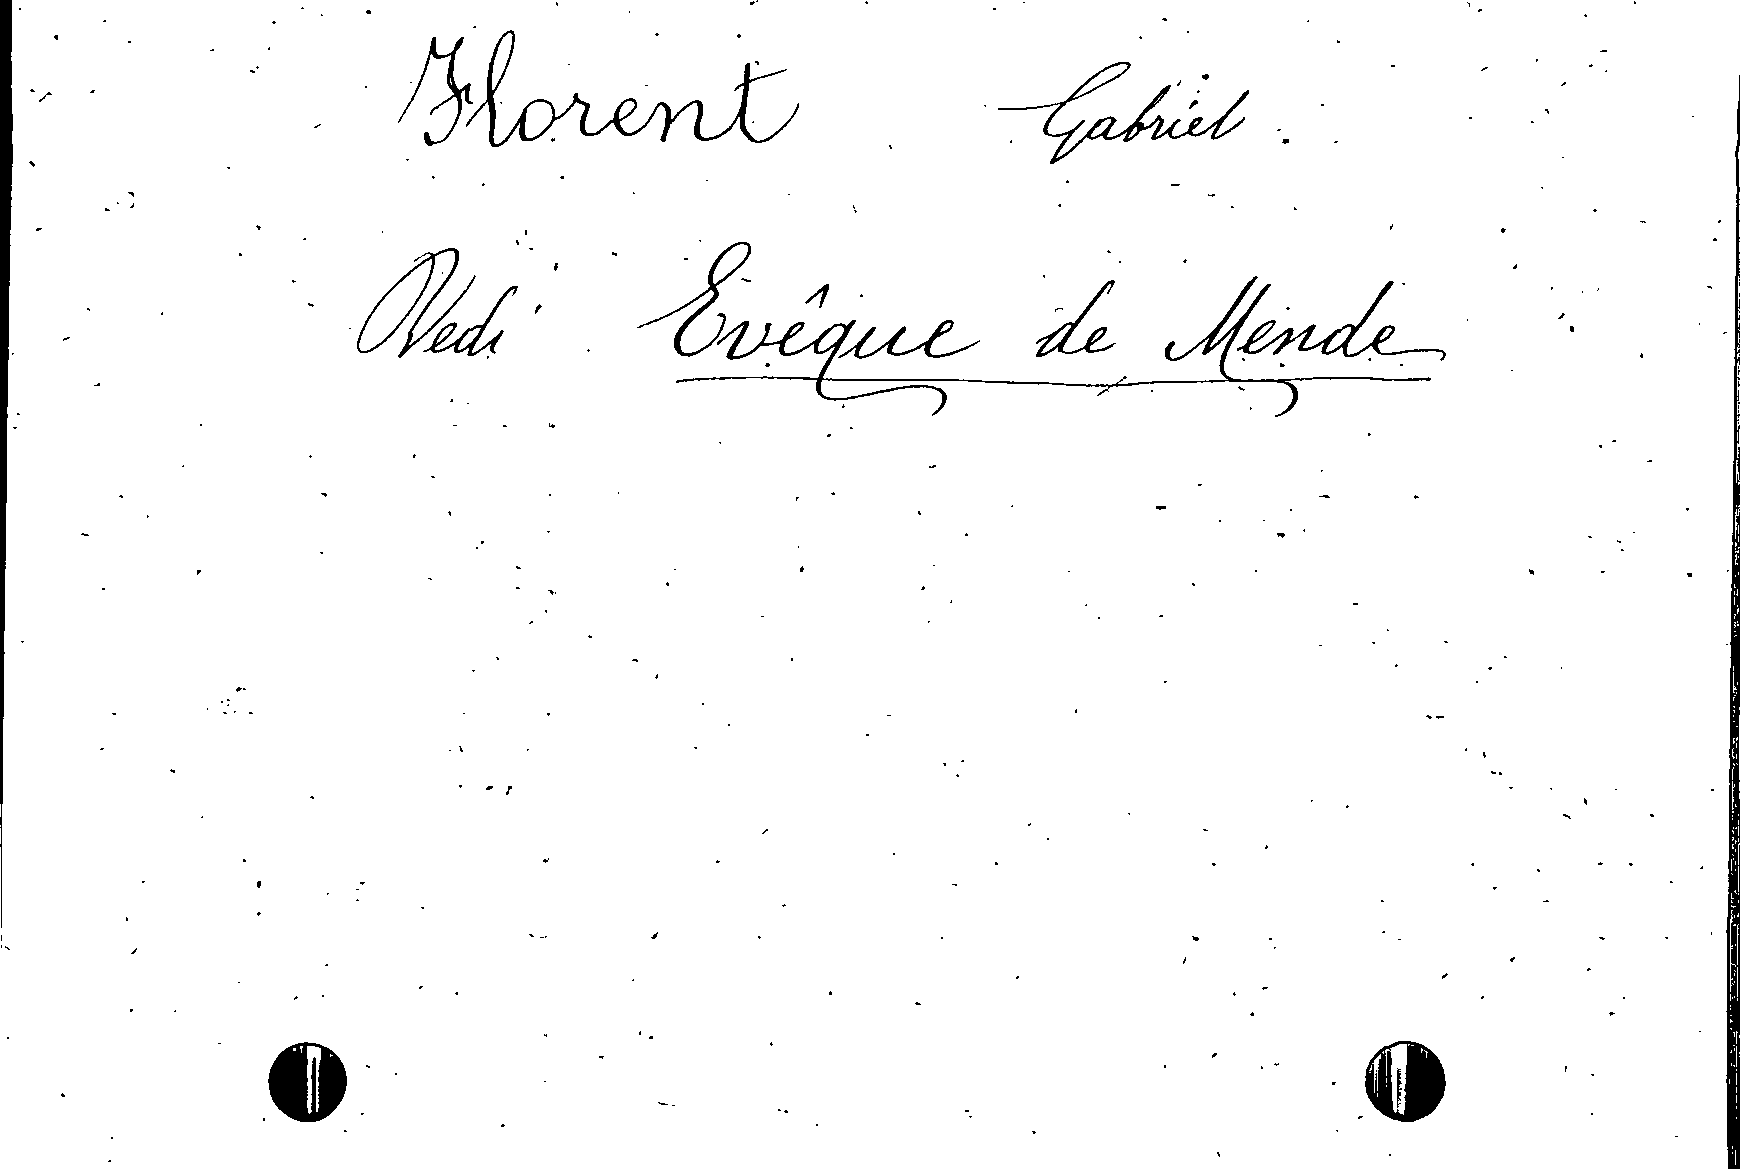 Florent Gabriel
Vedi Evêque de Mende